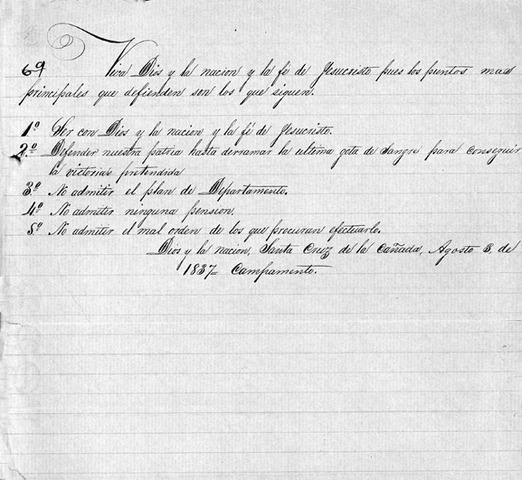 69 Viva Dios y la nacion y la fé de Jesucristo pues los puntos mas
principales que defienden son los que siguen.
1º Ser con Dios y la nacion y la fé de Jesucristo.
2º Defender nuestra patria hasta derramar la ultima gota de Sangre para conseguir
la victoria pretendida
3º No admitir el plan de Departamento.
4º No admitir ninguna pension.
5º No admitir el mal orden de los que procuran efectuarlo.
Dios y la nacion, Santa Cruz de la Cañada, Agosto 3, de
1837— Campamento.